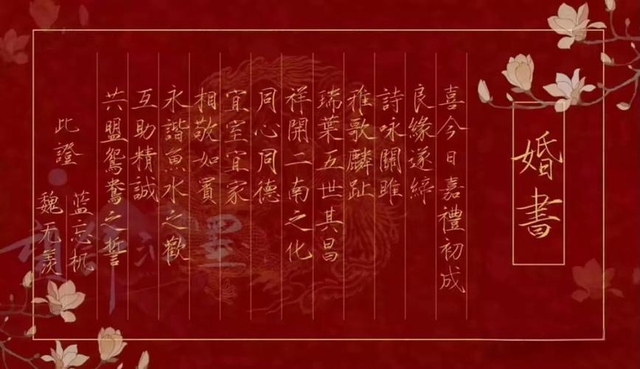 婚書
喜今日嘉禮初成
良緣遂締
詩咏關雎
雅歌麟趾
瑞葉五世其昌
祥開二南之化
同心同德
宜室宜家
相敬如賓
永諧魚水之歡
互助精誠
共盟鴛鴦之誓
此證
蓝忘机
魏无羡